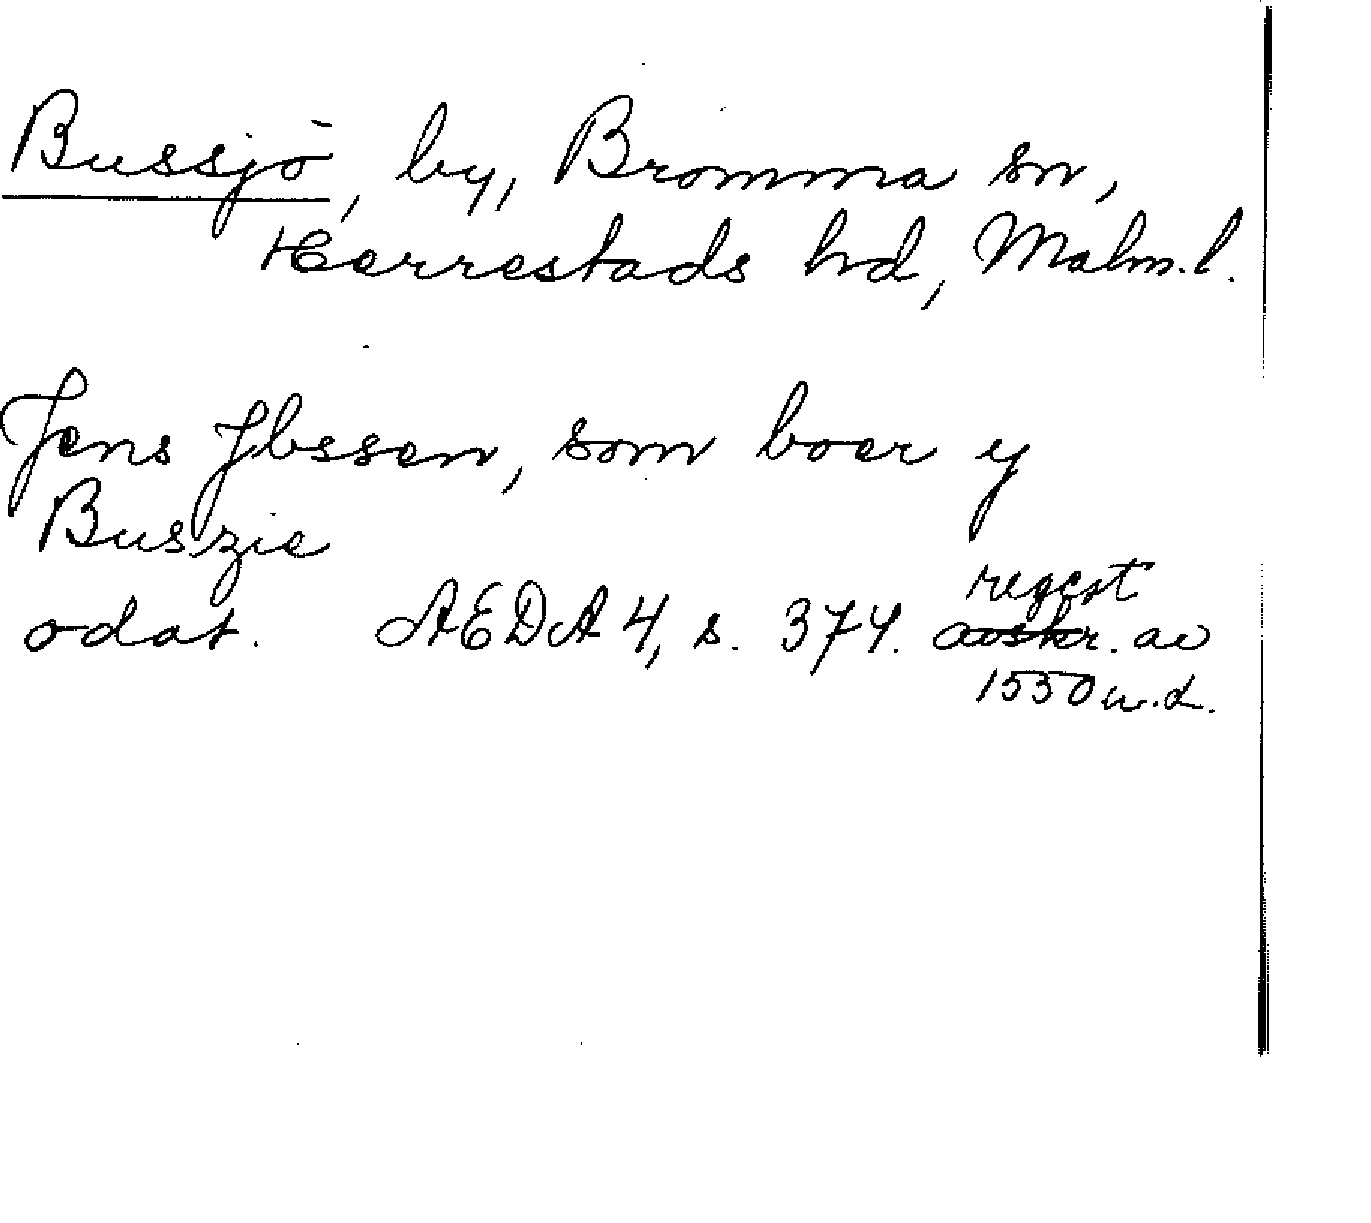 Bussjö, by, Bromma sn,
Herrestads hd, Malm.l.
Jens Jbssen, som boer y
Buszie
regest
odat. AEDA 4, s. 374. avskr. av
1550 u.d.